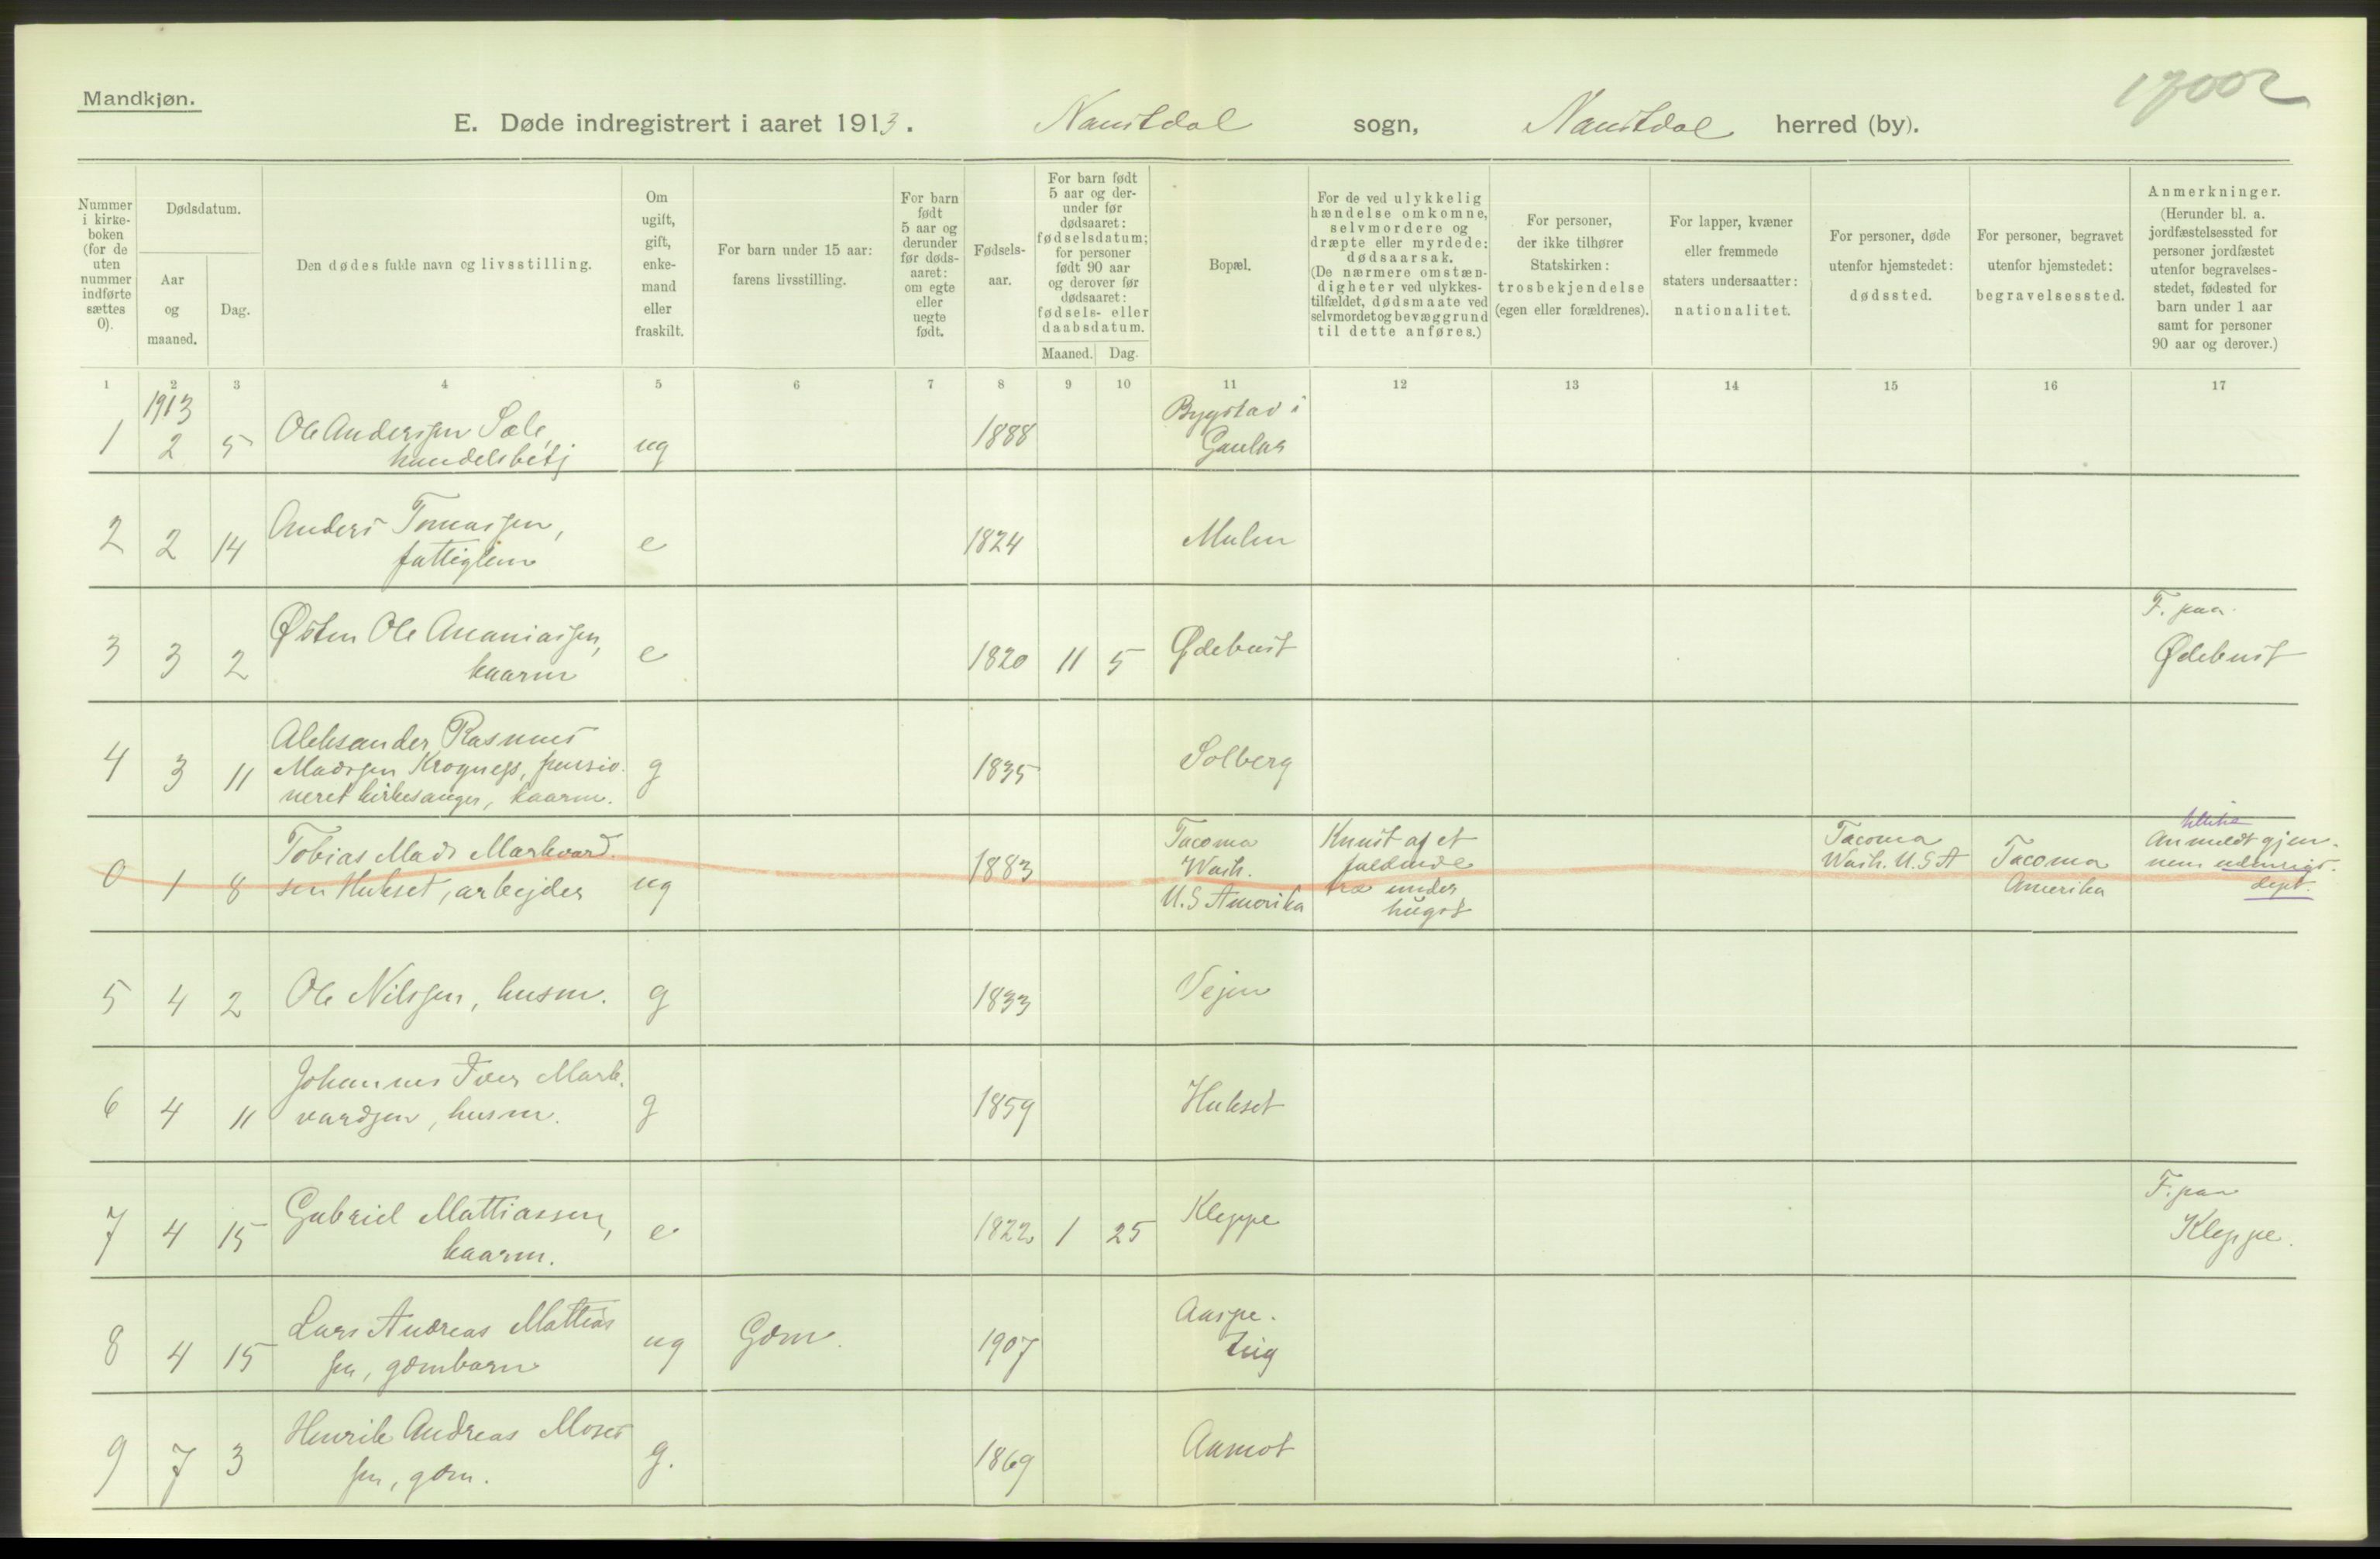 Mandkjøn.
17002
E. Døde indregistrert i aaret 1913. Naustdal sogn, Naustdal herred (by).
Nummer i kirke- boken (for de uten nummer indførte sættes 0).
Dødsdatum.
Aar og maaned.
Dag.
Den dødes fulde navn og livsstilling.
Om ugift, gift, enke- mand eller fraskilt.
For barn under 15 aar: farens livsstilling.
For barn født 5 aar og derunder før døds- aaret: om egte eller uegte født.
Fødsels- aar.
For barn født 5 aar og der- under før dødsaaret: fødselsdatum; for personer født 90 aar og derover før dødsaaret: fødsels- eller daabsdatum.
Maaned. Dag.
Bopæl.
For de ved ulykkelig hændelse omkomne, selvmordere og dræpte eller myrdede: dødsaarsak. (De nærmere omstæn- digheter ved ulykkes- tilfældet, dødsmaate ved selvmordet og bevæggrund til dette anføres.)
For personer, der ikke tilhører Statskirken: trosbekjendelse (egen eller forældrenes).
For lapper, kvæner eller fremmede staters undersaatter: nationalitet.
For personer, døde utenfor hjemstedet: dødssted.
For personer, begravet utenfor hjemstedet: begravelsessted.
Anmerkninger. (Herunder bl. a. jordfæstelsessted for personer jordfæstet utenfor begravelses- stedet, fødested for barn under 1 aar samt for personer 90 aar og derover.)
1 2 3 4 5 6 7 8 9 10 11 12 13 14 15 16 17
1913
1 2 5 Ole Anderssen Sæle, handelsbetj ug 1888 Bygstad i Gaular
2 2 14 Anders Tomassen, fattiglem e 1824
3 3 2 Østen Ole Ananiassen, kaarm e 1820 11 5 Ødebust F. paa Ødebust
4 3 11 Aleksander Rasmus Madssen Krogness, pensio- neret kirkesanger, kaarm. g 1835 Solberg
0 1 8 Tobias Mads Markvard- sen Hukset, arbejder ug 1883 Tacoma Wash. U.S Amerika Knust af et faldende træ under hugst Tacoma Wash. U.S A Tacoma Amerika Anmeldt gjen- nem udenrigs- dept.
5 4 2 Ole Nilssen, husm. g 1833 Vejen
6 4 11 Johannes Iver Mark- vardsen, husm. g 1859 Hukset
7 4 15 Gabriel Mattiassen, kaarm. e 1822 1 25 Kleppe F. paa Kleppe.
8 4 15 Lars Andreas Mattias sen, gdmbarn ug Gdm. 1907
9 7 3 Henrik Andreas Moses sen, gdm. g. 1869 Aamot